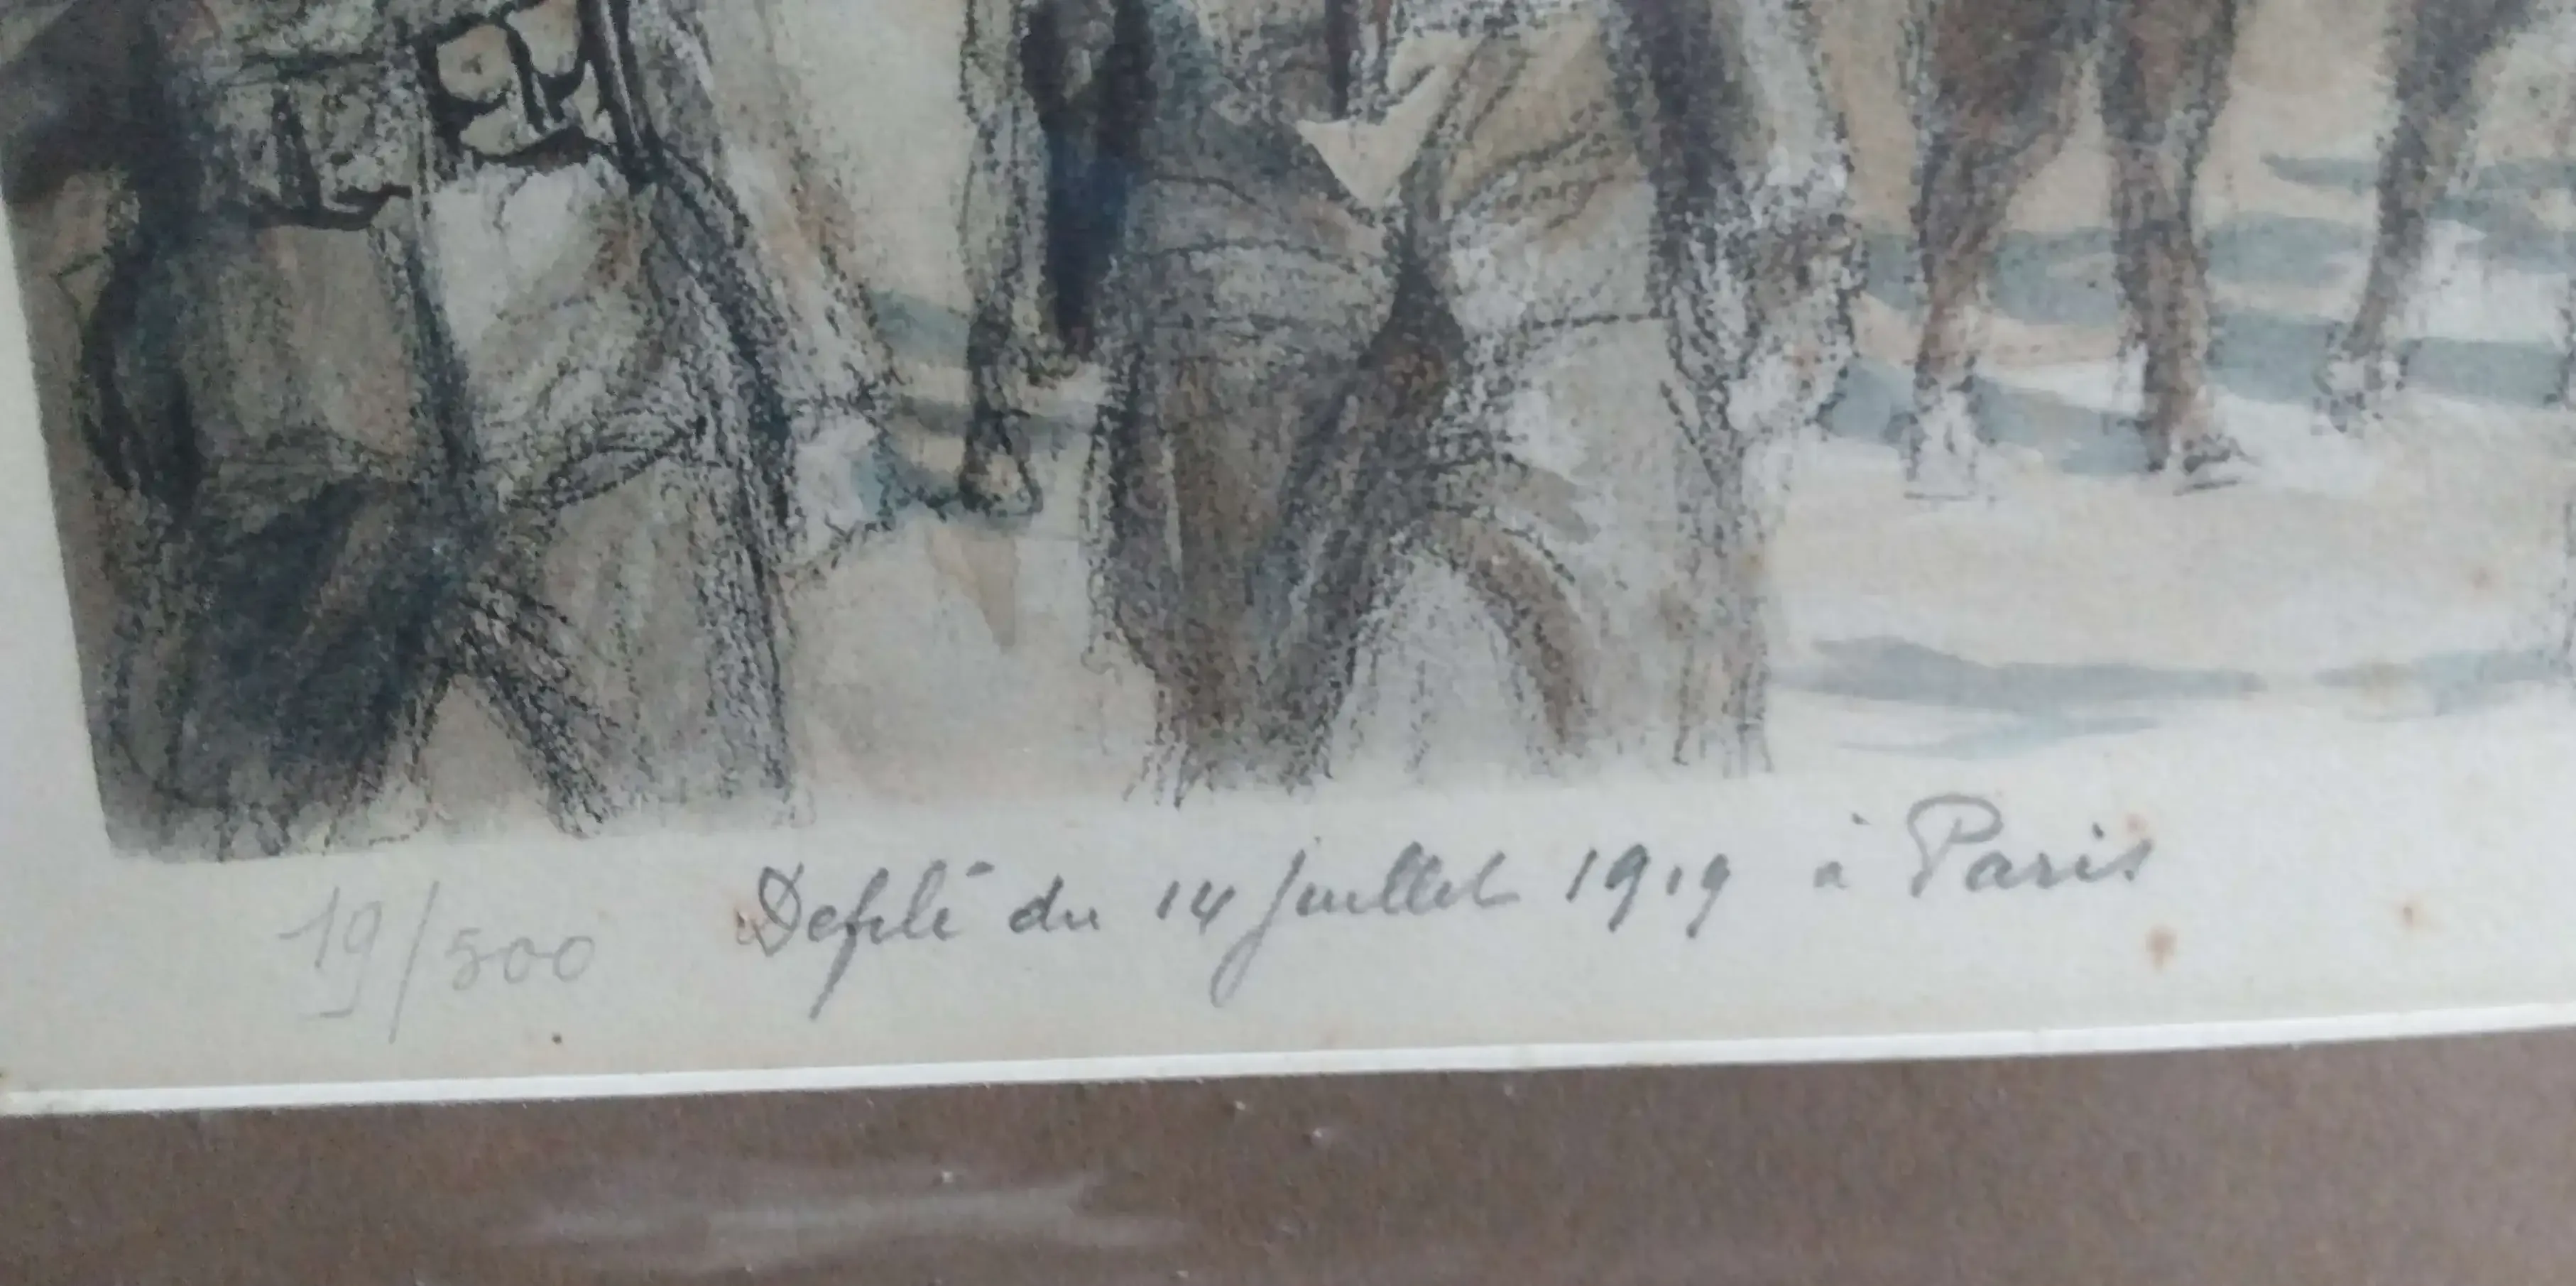 19/500 Defilé du 14 Juillet 1919 à Paris